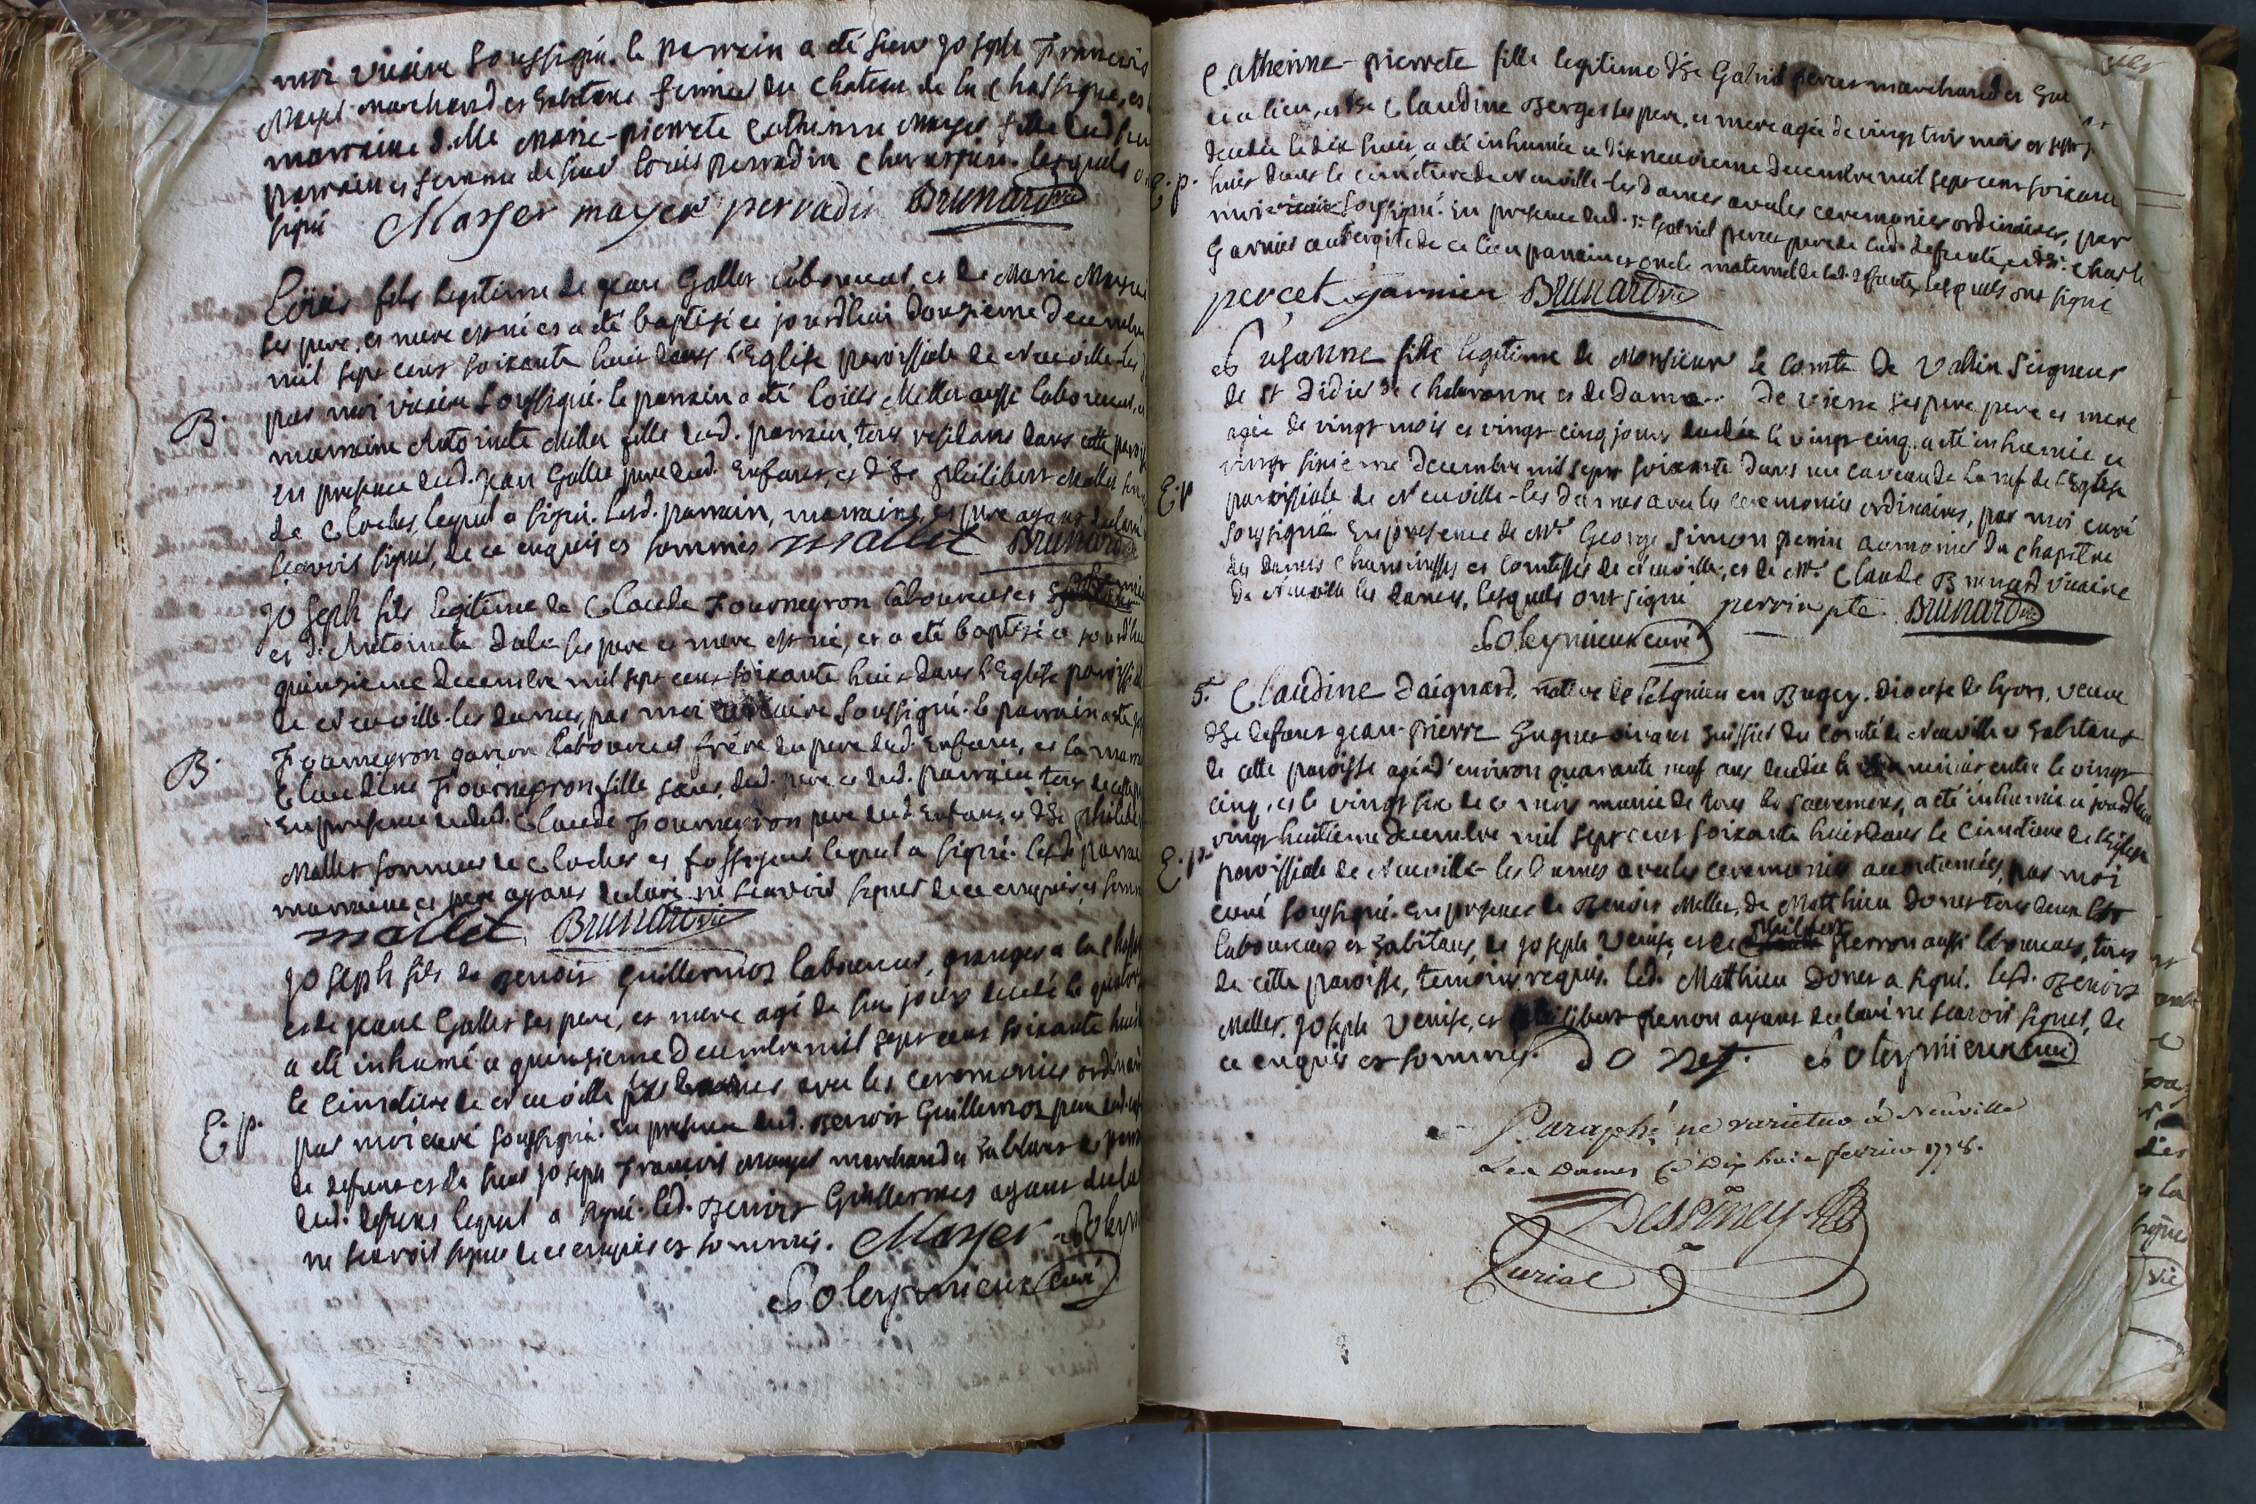 moi vicaire soussigné. le parrain a été sieur joseph François
Mayer marchand et habitant fermier du chateau de la Chassagne, et
marraine d.lle Marie-pierrete Catherinne Mayer fille dud. sieur
parrain et femme de sieur loüis perradin lesquels
signé Mayer mayer perradin Brunard vic
Loüis fils legitime de jean Gallet laboureur, et de Marie
ses pere, et mere est né et a été baptisé ce jourdhui douzieme decembre
mil sept cent soixante huit dans l'Eglise paroissiale de Neuville-les
B. par moi vicaire soussigné. le parrain a été loüis Mellet aussi laboureur, et
marraine Antoinete Mellet fille dud. parrain, tous residans dans cette
en presence dud. jean Gallet pere dud. Enfant, et d'h.e philibert Mallet
de cloches, lequel a signé. lesd. parrain, marraine, et pere ayant declaré
sçavoir signer, de ce enquis et sommés mallet Brunard vic
joseph fils legitime de Claude Fourneyron laboureur et
et d'Antoinete ses pere et mere est né, et a été baptisé ce jourdhui
quinzieme decembre mil sept cent soixante huit dans l'Eglise paroissiale
de Neuville-les dames, par moi vicaire soussigné. le parrain a été
B. Fourneyron garçon laboureur frere du pere dud. Enfant, et la
Claudine Fourneyron fille soeur dud. pere et dud. parrain tous de cette
En presence dud. Claude Fourneyron pere dud. Enfant, et d'h.e
Mallet sonneur de cloches et fossoyeur lequel a signé. lesd. parrain
marraine, et pere ayans declaré ne sçavoir signer de ce enquis, et
mallet Brunard vic
joseph fils de Benoit Guillermoz laboureur, granger a la
et de jeane Gallet ses pere, et mere agé de six jours decedé le
a été inhumé ce quinzieme decembre mil sept cent soixante huit
le cimetiere de Neuville les dames avec les ceremonies
E. p. par moi curé soussigné. En presence dud. Benoit Guillermoz pere
le defunt et de sieur joseph François Mayer marchand et habitant
dud. defunt lequel a signé. led. Benoit Guillermoz ayant declaré
ne sçavoir signer de ce enquis et sommé. Mayer
Soleymieux curé
Catherine-pierrete fille legitime d'h.e Gabriel percet marchand et
ce lieu, et d'h.e Claudine Berger ses pere, et mere agée de vingt trois mois et sept
decedée le dix huit, a été inhumée ce dix neuvieme decembre mil sept cent soixante
E. p. huit dans le cimetiere de Neuville-les Dames avec les ceremonies ordinaires, par
moi vicaire soussigné. En presence dud. s.r Gabriel percet pere de lad. defunte, et d'h.e Charle
Garnier aubergiste de ce lieu parrain et oncle maternel de lad. defunte, lesquels ont signé
percet garnier Brunard vic
Susanne fille legitime de Monsieur le Comte de Vallin Seigneur
de St Didier de Chalaronne et de Dame .. De vienne ses pere et mere
agée de vingt mois et vingt cinq jours decedée le vingt cinq, a été inhumée ce
vingt sixieme decembre mil sept soixante dans un caveau de la nef de l'Eglise
E. p paroissiale de Neuville-les dames avec les ceremonies ordinaires, par moi curé
soussigné En presence de M.r George Simon perrin aumonier du chapitre
des dames Chanoinesses et Comtesses de Neuville, et de M.r Claude Brunard vicaire
de Neuville les dames, lesquels ont signé perrin ptr. Brunard vic
Soleymieux curé
5. Claudine Daignard, native de en Bugey, Diocese de lyon, veuve
d'h.e defunt jean-pierre huissier du Comté de Neuville habitant
de cette paroisse agée d'environ quarante neuf ans decedée le minuit entre le vingt
cinq, et le vingt six de ce mois munie de tous les sacremens, a été inhumée ce jourdhui
vingt huitieme decembre mil sept cent soixante huit dans le Cimetiere de l'Eglise
E. p. paroissiale de Neuville-les Dames avec les ceremonies accoutumées, par moi
curé soussigné. En presence de Benoit Mellet, de Matthieu Donet tous deux
laboureurs et habitans, de joseph Venise, et de philibert perron aussi laboureur, tous
de cette paroisse, temoins requis. led. Matthieu Donet a signé. lesd. Benoit
Mellet, joseph Venise, et philibert perron ayans declaré ne sçavoir signer, de
ce enquis et sommés. do Net. Soleymieux curé
Paraphé ne varietur à Neuville
Les Dames Ce Dix huit fevrier
Despiney
Curial